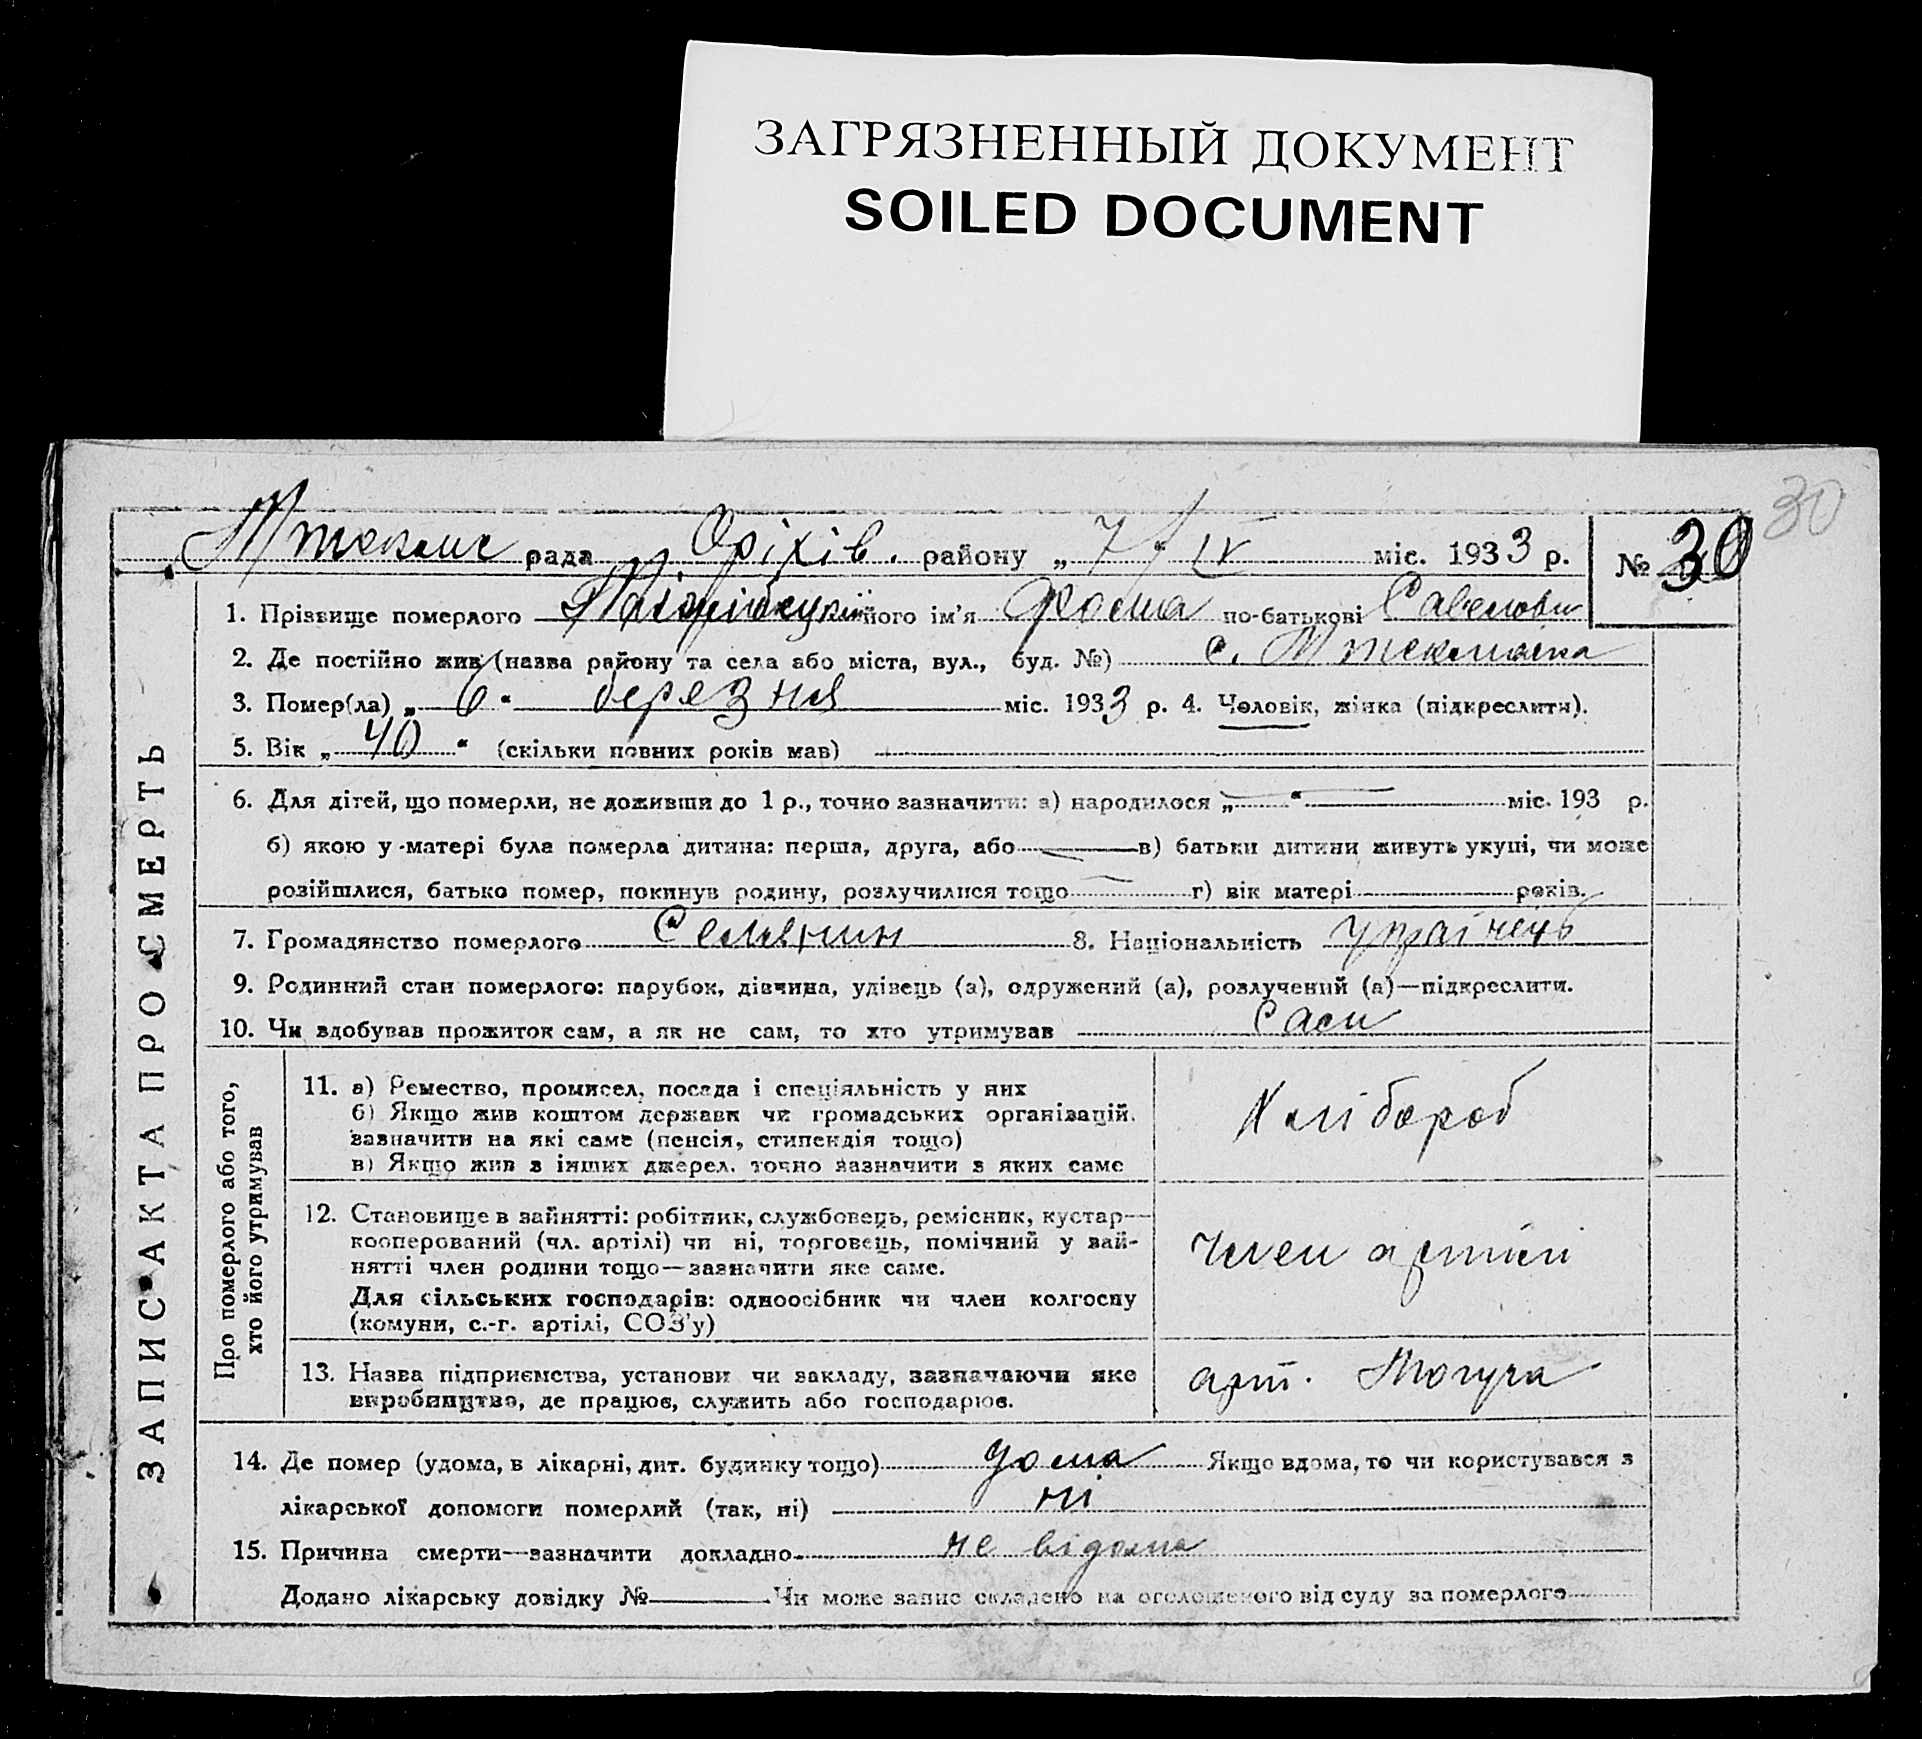 ЗАГРЯЗНЕННЫЙ ДОКУМЕНТ
SOILED DOCUMENT
30
рада Оріхів. району „ 7 “ IX міс. 1933 р. № 30
1. Прізвище померлого його ім'я Фома по-батькові
2. Де постійно жив (назва району та села або міста, вул., буд. №) с.
3. Помер(ла) „ 6 “ березня міс. 1933 р. 4. Чоловік, жінка (підкреслити).
5. Вік „ 40 “ (скільки повних років мав)
6. Для дітей, що померли, не доживши до 1 р., точно зазначити: а) народилося „ “ міс. 193 р.
б) якою у матері була померла дитина: перша, друга, або в) батьки дитини живуть укупі, чи може
розійшлися, батько помер, покинув родину, розлучилися тощо г) вік матері років.
7. Громадянство померлого Селянин 8. Національність українець
9. Родинний стан померлого: парубок, дівчина, удівець (а), одружений (а), розлучений (а)—підкреслити.
10. Чи здобував прожиток сам, а як не сам, то хто утримував Сам
ЗАПИС АКТА ПРО СМЕРТЬ
Про померлого або того,
хто його утримував
11. а) Ремество, промисел, посада і спеціяльність у них
б) Якщо жив коштом держави чи громадських організацій,
зазначити на які саме (пенсія, стипендія тощо)
в) Якщо жив з інших джерел, точно зазначити з яких саме
Хлібороб
12. Становище в зайнятті: робітник, службовець, ремісник, кустар—
кооперований (чл. артілі) чи ні, торговець, помічний у зай-
нятті член родини тощо—зазначити яке саме.
Для сільських господарів: одноосібник чи член колгоспу
(комуни, с.-г. артілі, СОЗ'у)
член артілі
13. Назва підприємства, установи чи закладу, зазначаючи яке
виробництво, де працює, служить або господарює.
арт.
14. Де помер (удома, в лікарні, дит. будинку тощо) дома Якщо вдома, то чи користувався з
лікарської допомоги померлий (так, ні) ні
15. Причина смерти—зазначити докладно не відома
Додано лікарську довідку № Чи може запис складено на оголошеного від суду за померлого